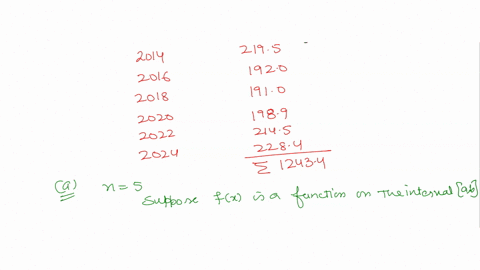 2014 219.5
2016 192.0
2018 191.0
2020 198.9
2022 214.5
2024 228.4
Σ 1243.4
(a) n=5
Suppose f(x) is a function on the interval [a,b]